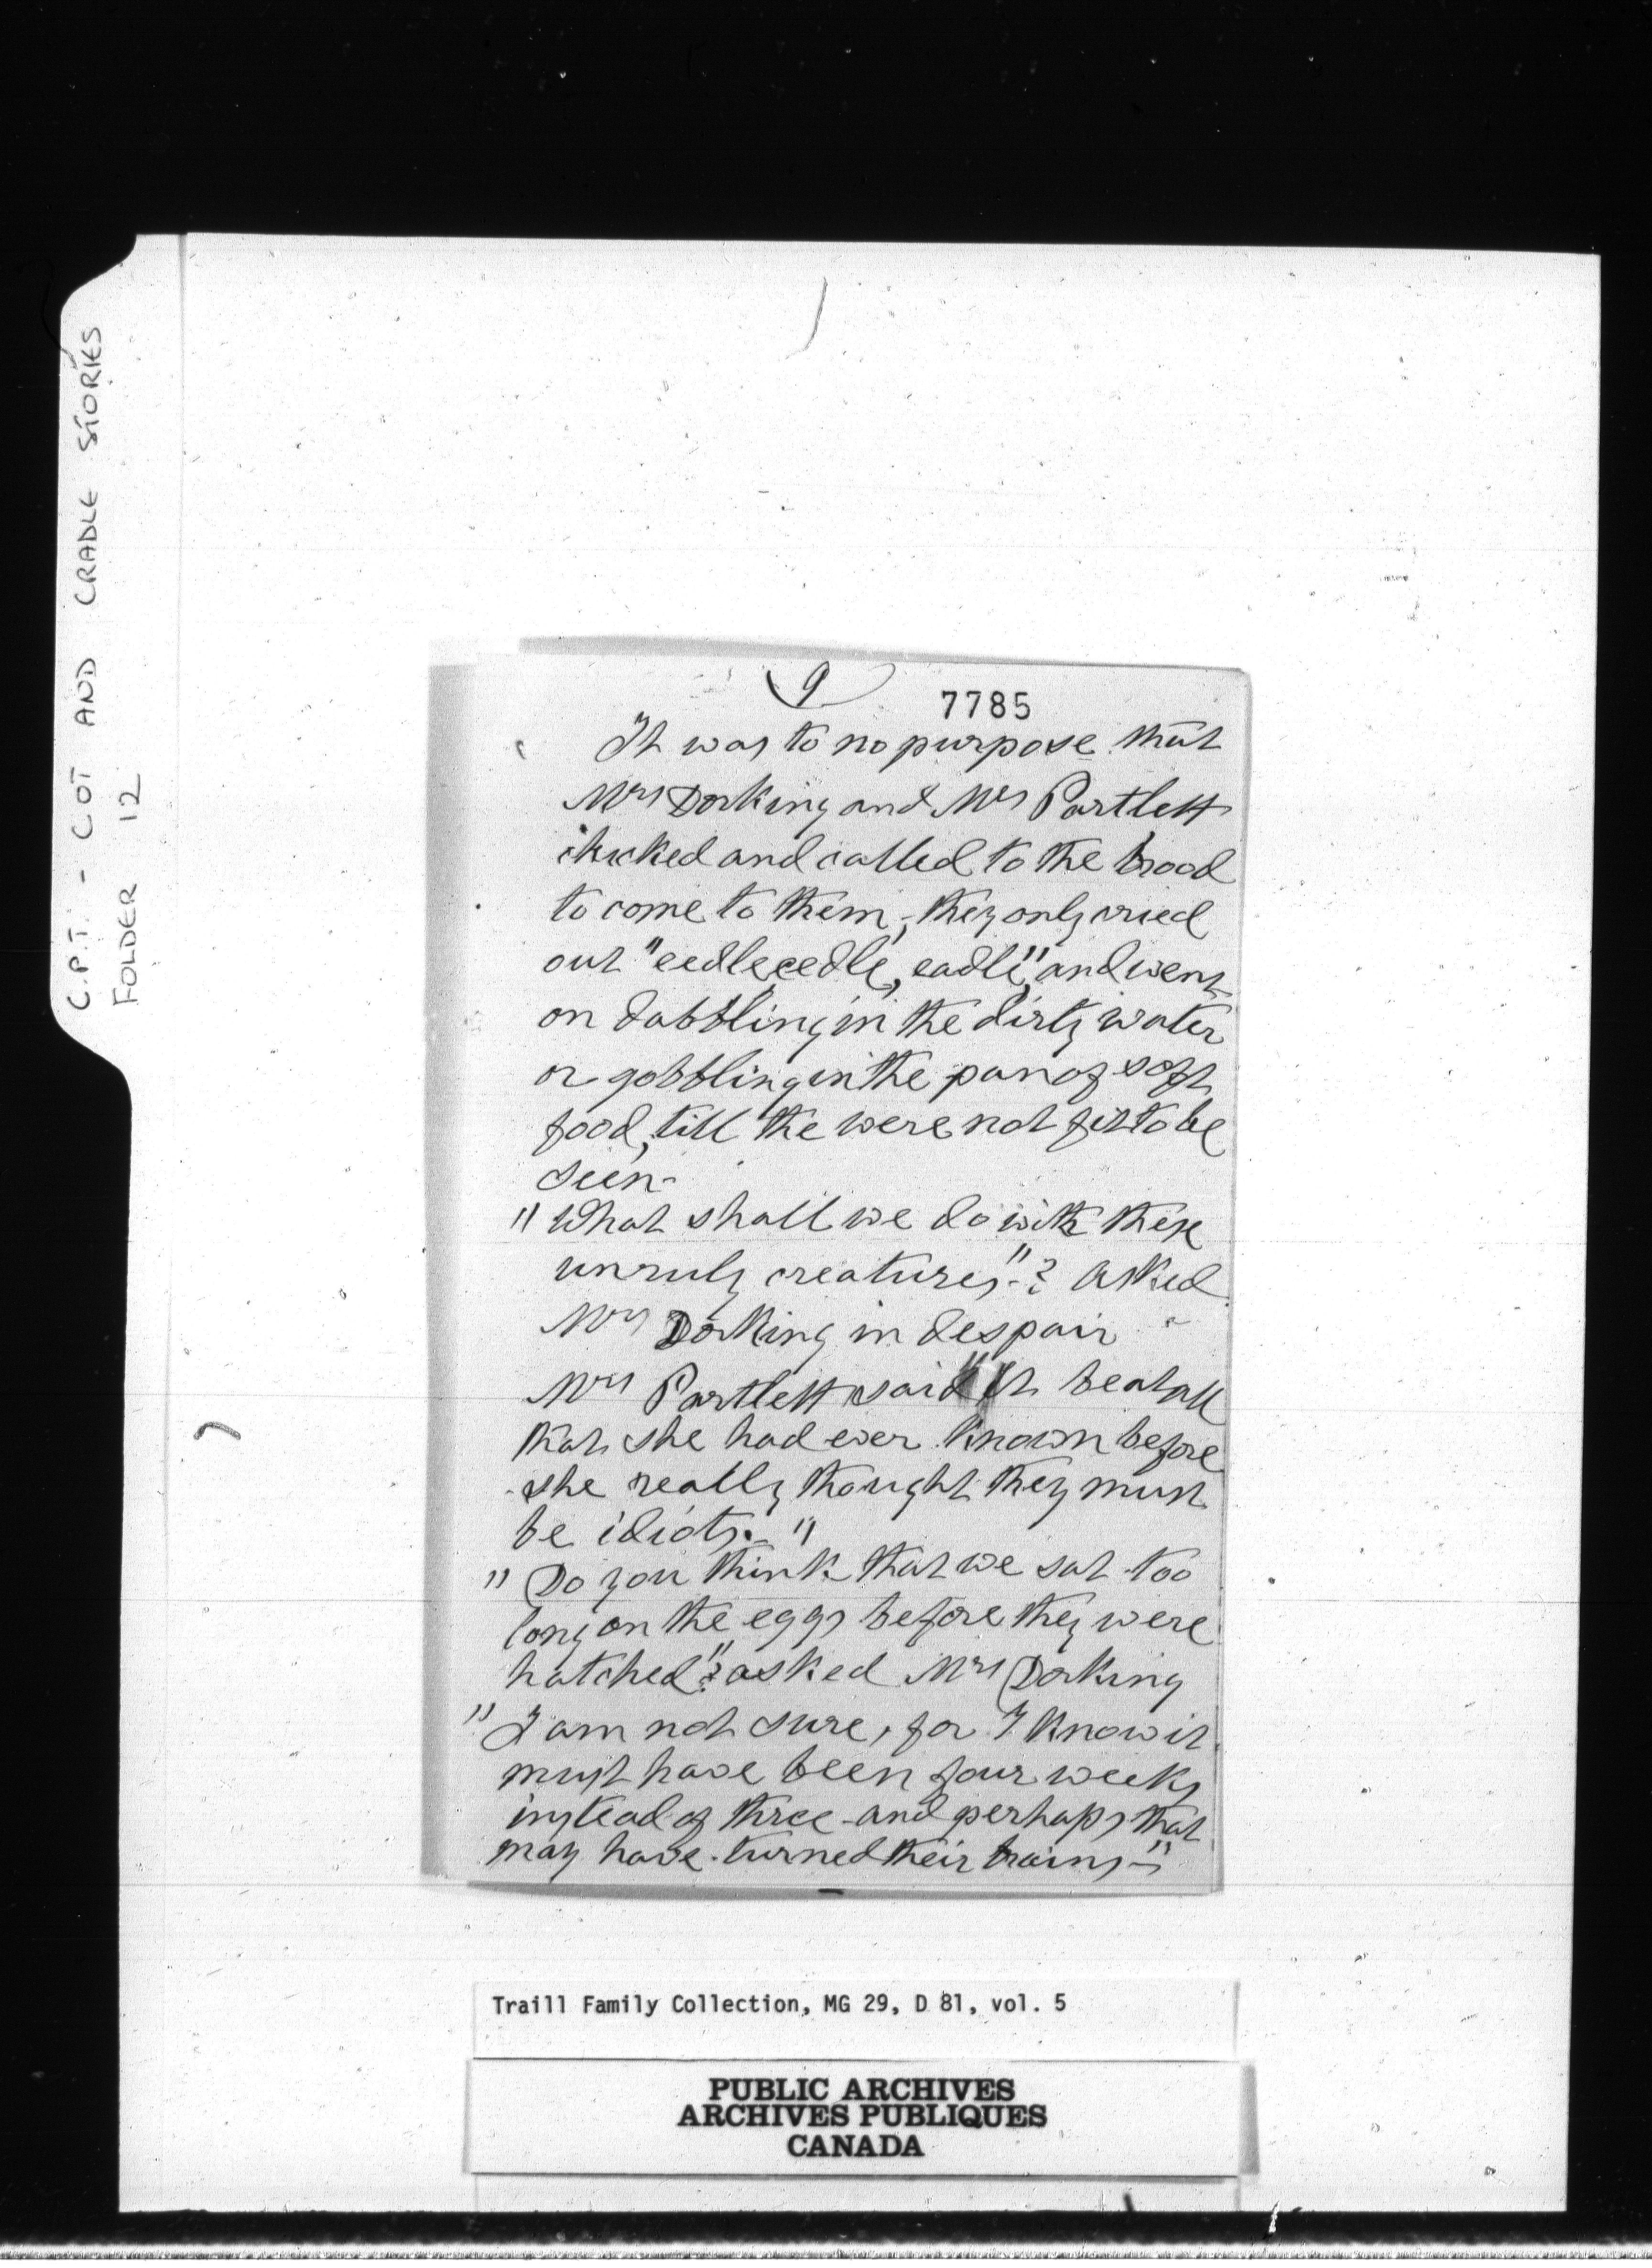 C.P.T. - COT AND CRADLE STORIES
FOLDER 12
9
7785
It was to no purpose that
Mrs Dorking and Mrs Partlett
chicked and called to the brood
to come to them, they only cried
out "eedle, eedle, eadle", and went
on dabbling in the dirty water
or gobbling in the pan of soft
food, till the were not fit to be
seen-
"What shall we do with these
unruly creatures"-? asked
Mrs Dorking in despair
Mrs Partlett said "It beat all
that she had ever known before
she really thought they must
be idiots.-"
"Do you think that we sat too
long on the eggs before they were
hatched"? asked Mrs Dorking
"I am not sure, for I know it
must have been four weeks
instead of three - and perhaps that
may have turned their brains-"
Traill Family Collection, MG 29, D 81, vol. 5
PUBLIC ARCHIVES
ARCHIVES PUBLIQUES
CANADA